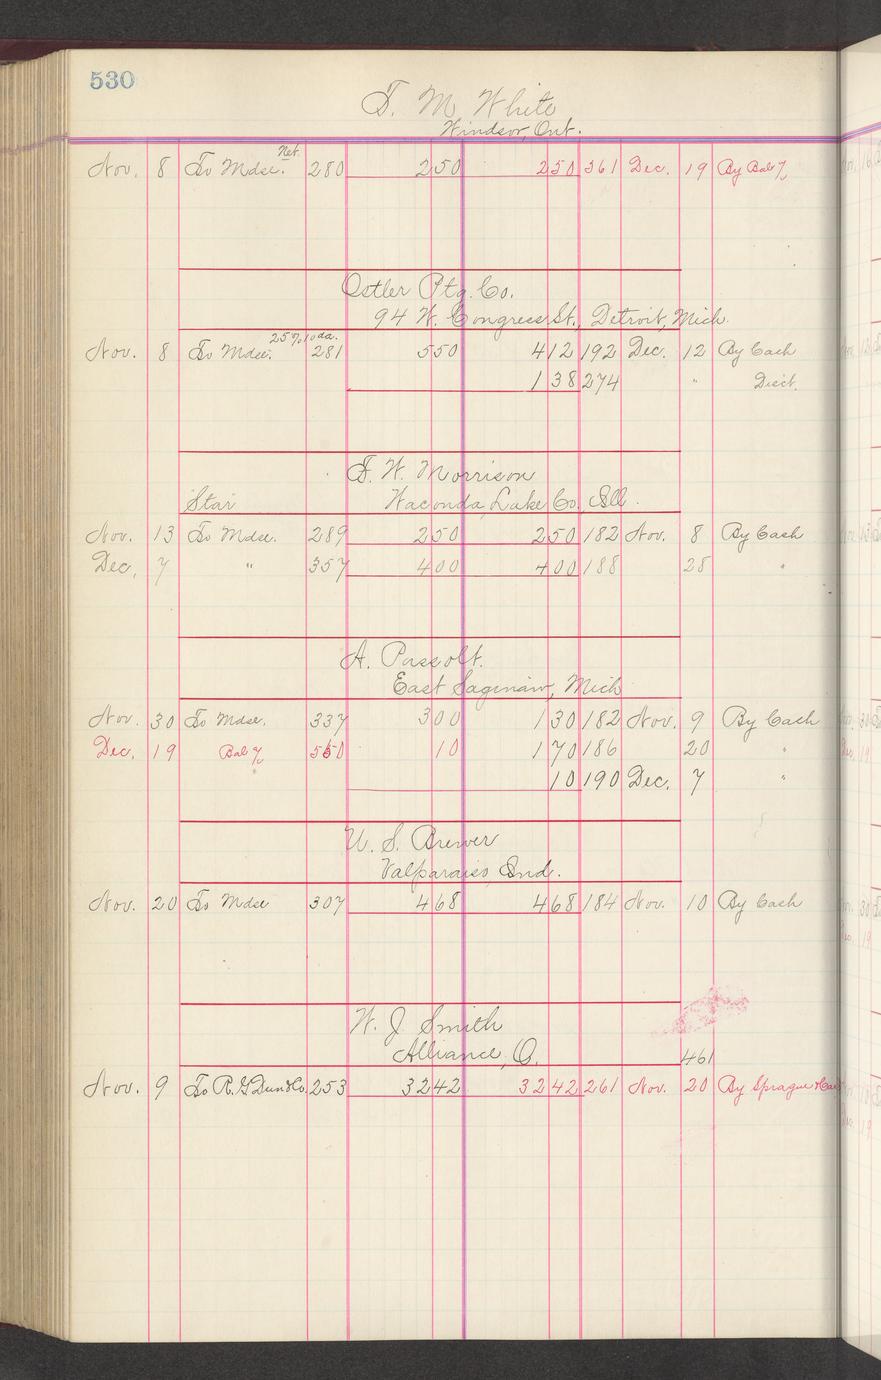 530
T. M. White
Windsor, Ont.
Net.
Nov. 8 To Mdse. 280 2 50 2 50 361 Dec. 19 By Bal %
Ostler Ptg. Co.
94 W. Congress St., Detroit, Mich.
25% 10 da.
Nov. 8 To Mdse. 281 5 50 4 12 192 Dec. 12 By Cash
1 38 274 " Disct.
F. W. Morrison
Star Waconda, Lake Co., Ill.
Nov. 13 To Mdse. 289 2 50 2 50 182 Nov. 8 By Cash
Dec. 7 " 357 4 00 4 00 188 28 "
A. Passolt.
East Saginaw, Mich
Nov. 30 To Mdse. 337 3 00 1 30 182 Nov. 9 By Cash
Dec. 19 Bal % 550 10 1 70 186 20 "
10 190 Dec. 7 "
U. S. Brewer
Valparaiso, Ind.
Nov. 20 To Mdse 307 4 68 4 68 184 Nov. 10 By Cash
W. J. Smith
Alliance, O. 461
Nov. 9 To R. G. Dun & Co. 253 32 42 32 42 261 Nov. 20 By Sprague &